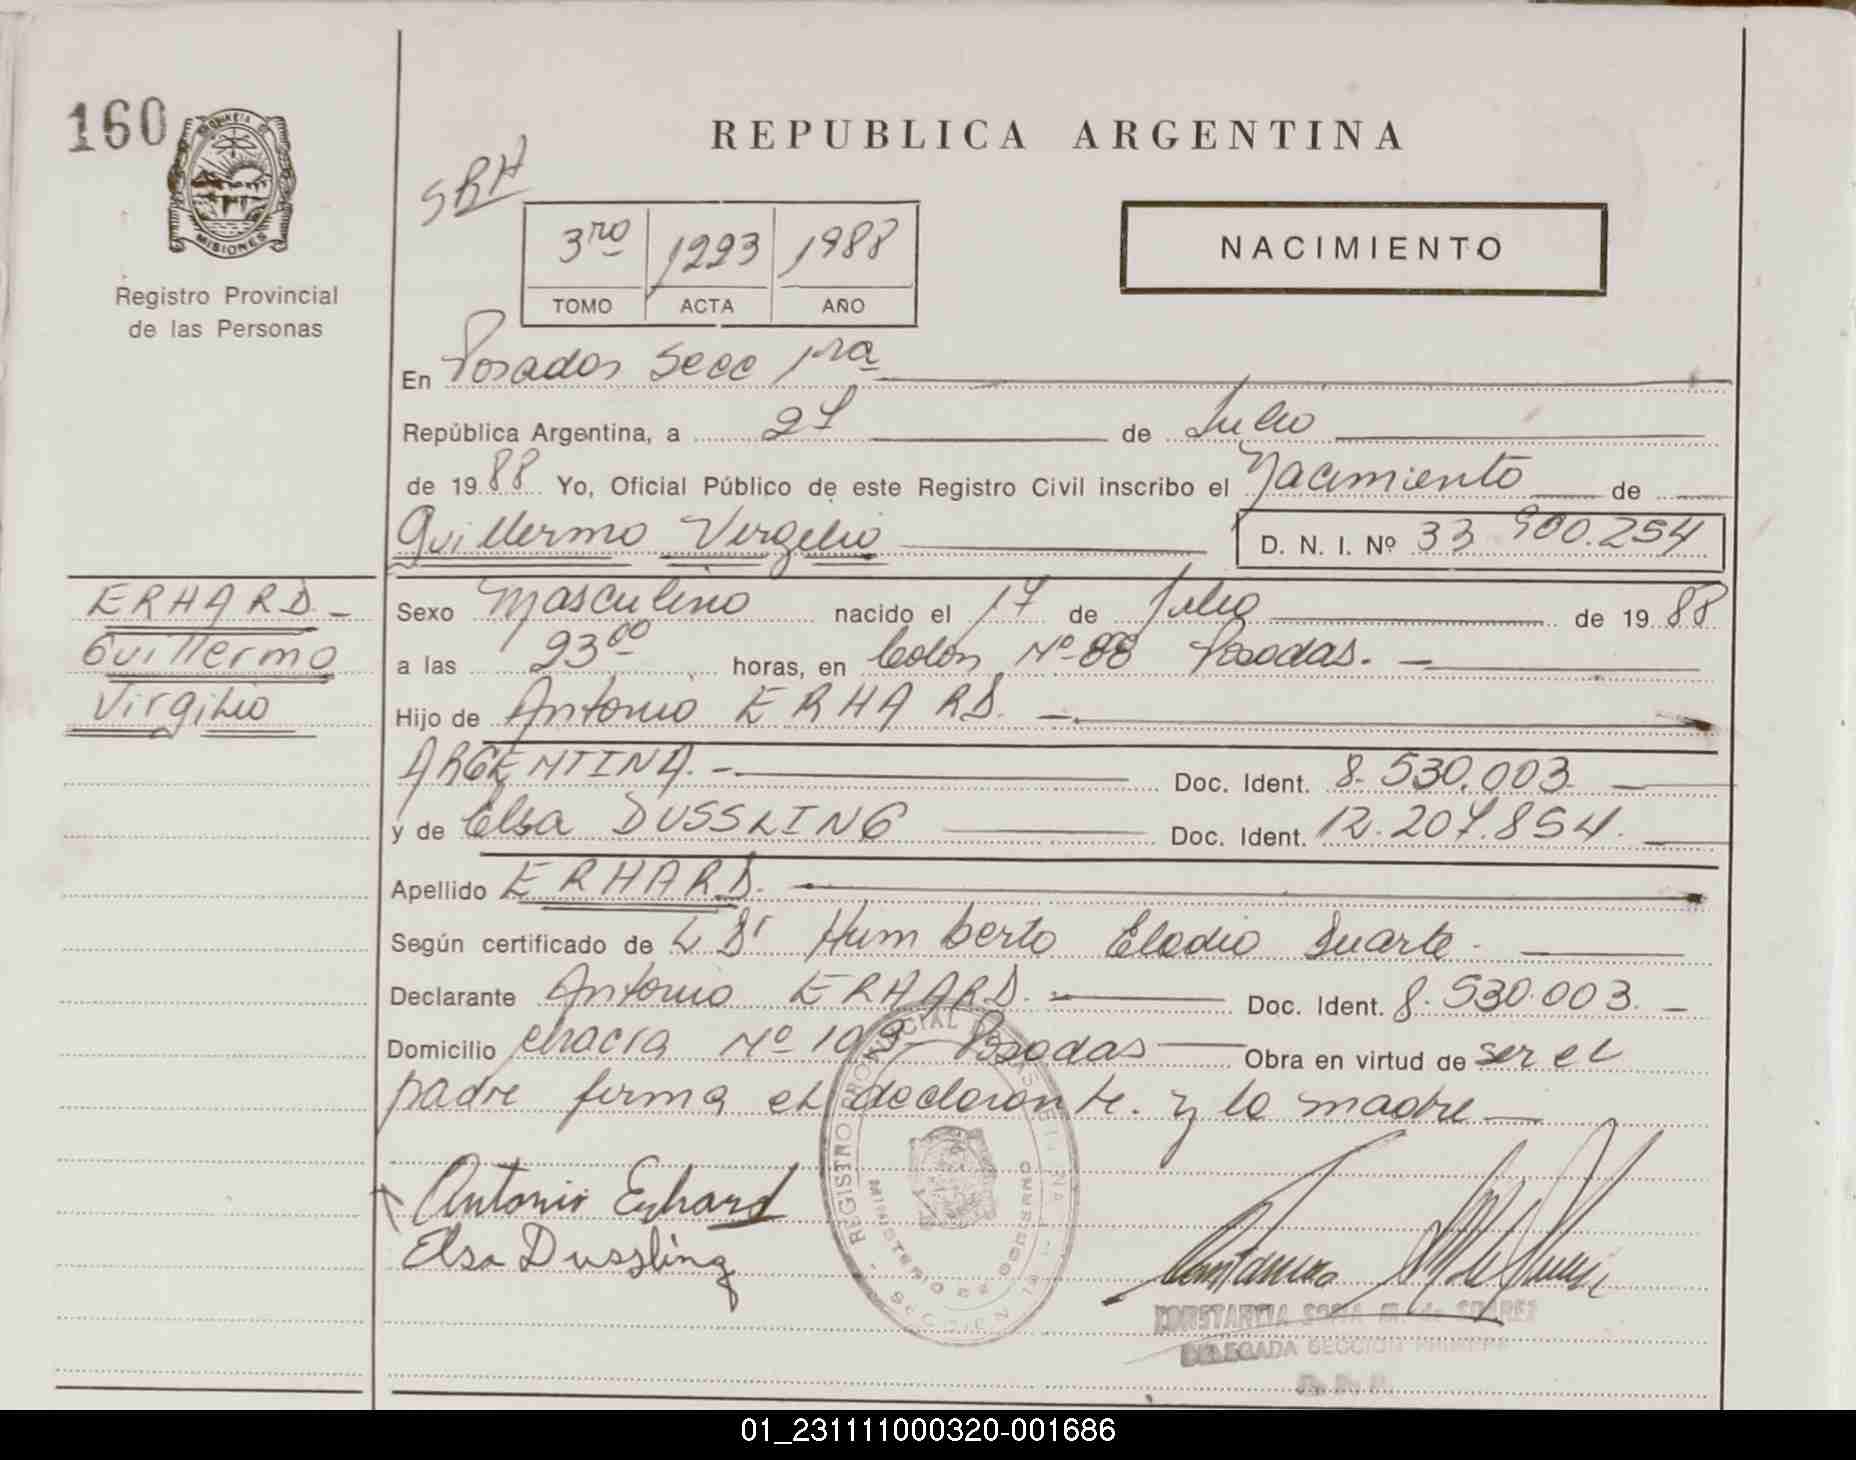 160
PROVINCIA DE
MISIONES
Registro Provincial
de las Personas
SRH
REPUBLICA ARGENTINA
3ro 1223 1988
TOMO ACTA AÑO
NACIMIENTO
En Posadas Secc 1ra
República Argentina, a 27 de Julio
de 1988 Yo, Oficial Público de este Registro Civil inscribo el Nacimiento de
Guillermo Virgilio D. N. I. Nº 33 900.254
ERHARD.-
Guillermo
Virgilio
Sexo Masculino nacido el 17 de Julio de 1988
a las 23 00 horas, en Colon Nº 88 Posadas.
Hijo de Antonio ERHARD.
ARGENTINA.- Doc. Ident. 8.530.003
y de Elsa DUSSLING Doc. Ident. 12.207.854.
Apellido ERHARD.
Según certificado de L Dr Humberto Eladio Duarte.
Declarante Antonio ERHARD. Doc. Ident. 8.530.003.
Domicilio chacra Nº 193 Posadas Obra en virtud de ser el
padre firma el declarante. y la madre
Antonio Erhard
Elsa Dussling
REGISTRO PROVINCIAL DE LAS PERSONAS
MINISTERIO DE GOBIERNO
CONSTANCIA SONIA M. de SUAREZ
DELEGADA SECCION PRIMERA
01_231111000320-001686